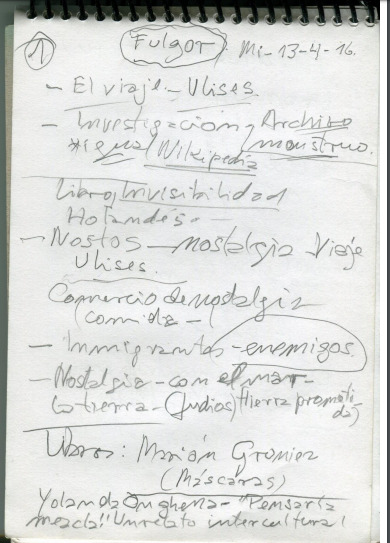 1 Fulgor Mi-13-4-16.
- El viaje - Ulises.
- Investigación y Archivo
*igual Wikipedia monstruo.
Libro, Invisibilidad
Holandés -
- Nostos - nostalgia Viaje
Ulises.
Comercio de nostalgia
comida -
- Inmigrantes - enemigos.
- Nostalgia - con el mar -
la tierra - (Judios) (tierra prometida)
Libros: Marión
(Máscaras)
Yolanda Onghena - "Pensar la
mezcla" Un relato intercultural